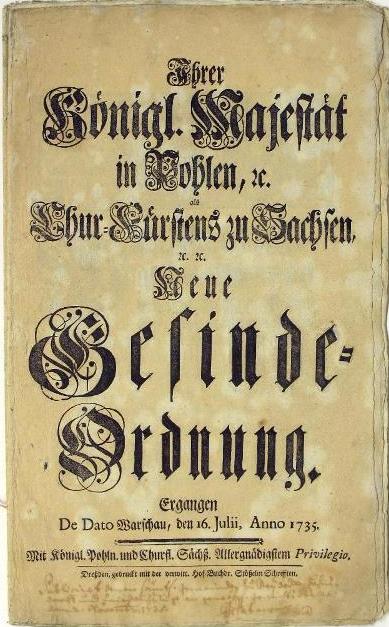 Ihrer
Königl. Majestät
in Pohlen, ꝛc.
als
Chur-Fürstens zu Sachsen,
ꝛc. ꝛc.
Neue
Gesinde-
Ordnung.
Ergangen
De Dato Warschau, den 16. Julii, Anno 1735.
Mit Königl. Pohln. und Churfl. Sächß. Allergnädigstem Privilegio.
Dreßden, gedruckt mit der verwitt. Hof-Buchdr. Stößelin Schrifften.